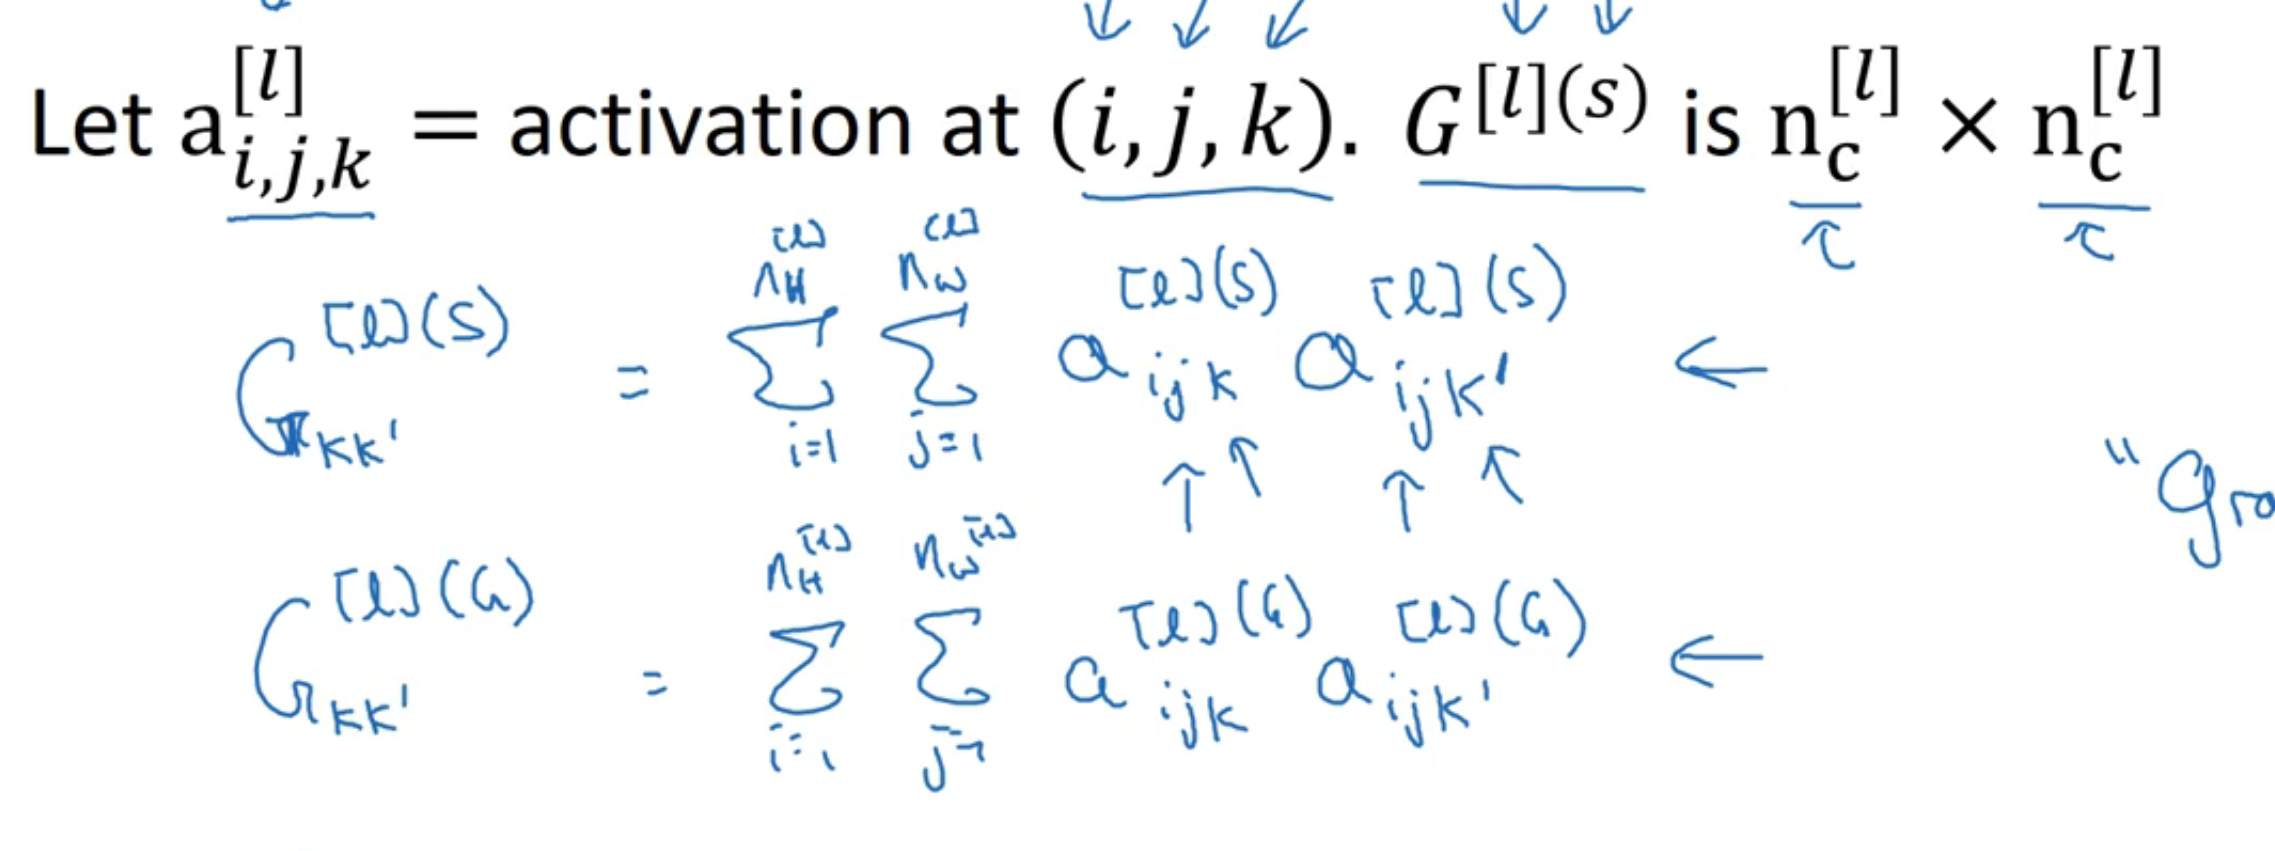 Let a^{[l]}_{i,j,k} = activation at (i, j, k). G^{[l](s)} is n_c^{[l]} × n_c^{[l]}
G_{kk'}^{[l](S)} = \sum_{i=1}^{n_H^{[l]}} \sum_{j=1}^{n_W^{[l]}} a_{ijk}^{[l](S)} a_{ijk'}^{[l](S)} ←
"Gra
G_{kk'}^{[l](G)} = \sum_{i=1}^{n_H^{[l]}} \sum_{j=1}^{n_W^{[l]}} a_{ijk}^{[l](G)} a_{ijk'}^{[l](G)} ←